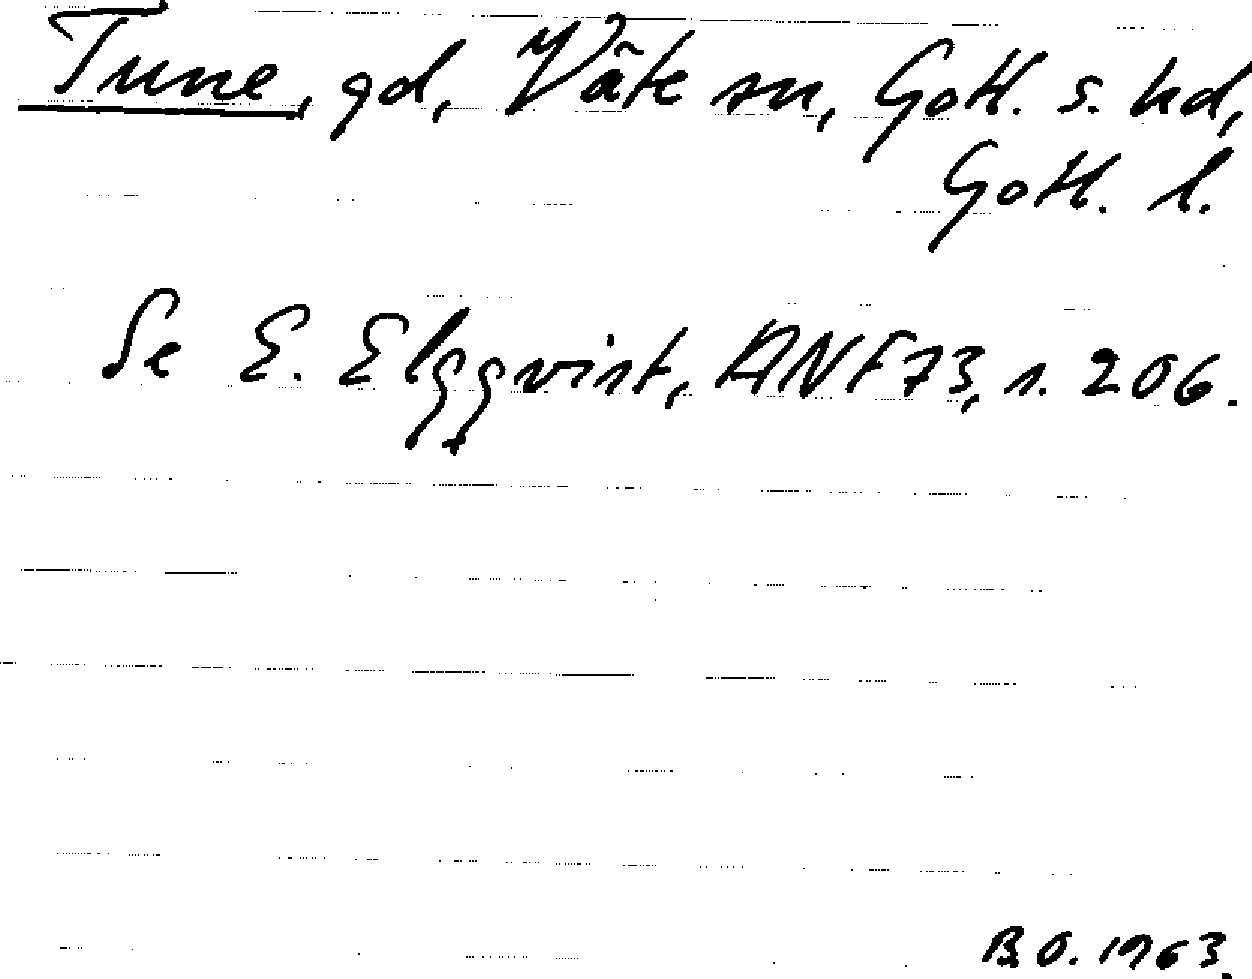 Tune, gd, Väte sn, Gotl. s. hd,
Gotl. l.
Se E. Elgqvist, ANF 73, s. 206.
B.O. 1963.